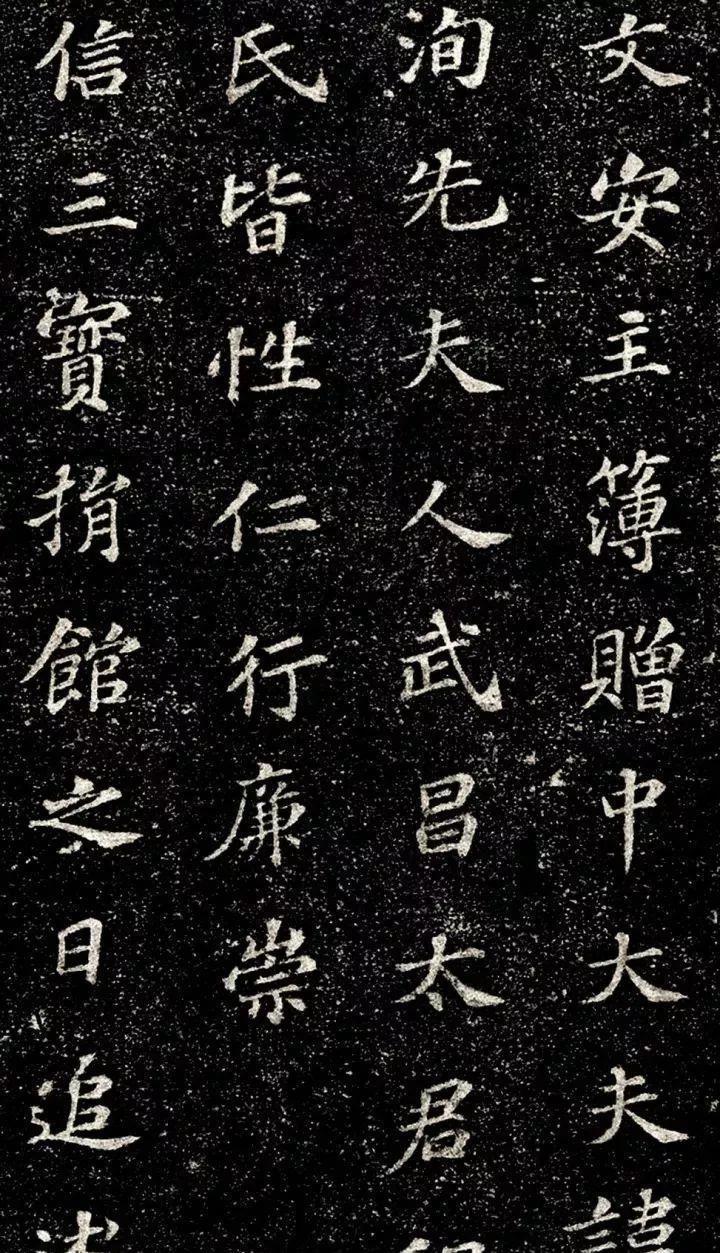 文安主簿贈中大夫諱
洵先夫人武昌太君程
氏皆性仁行廉崇
信三寶捐館之日追